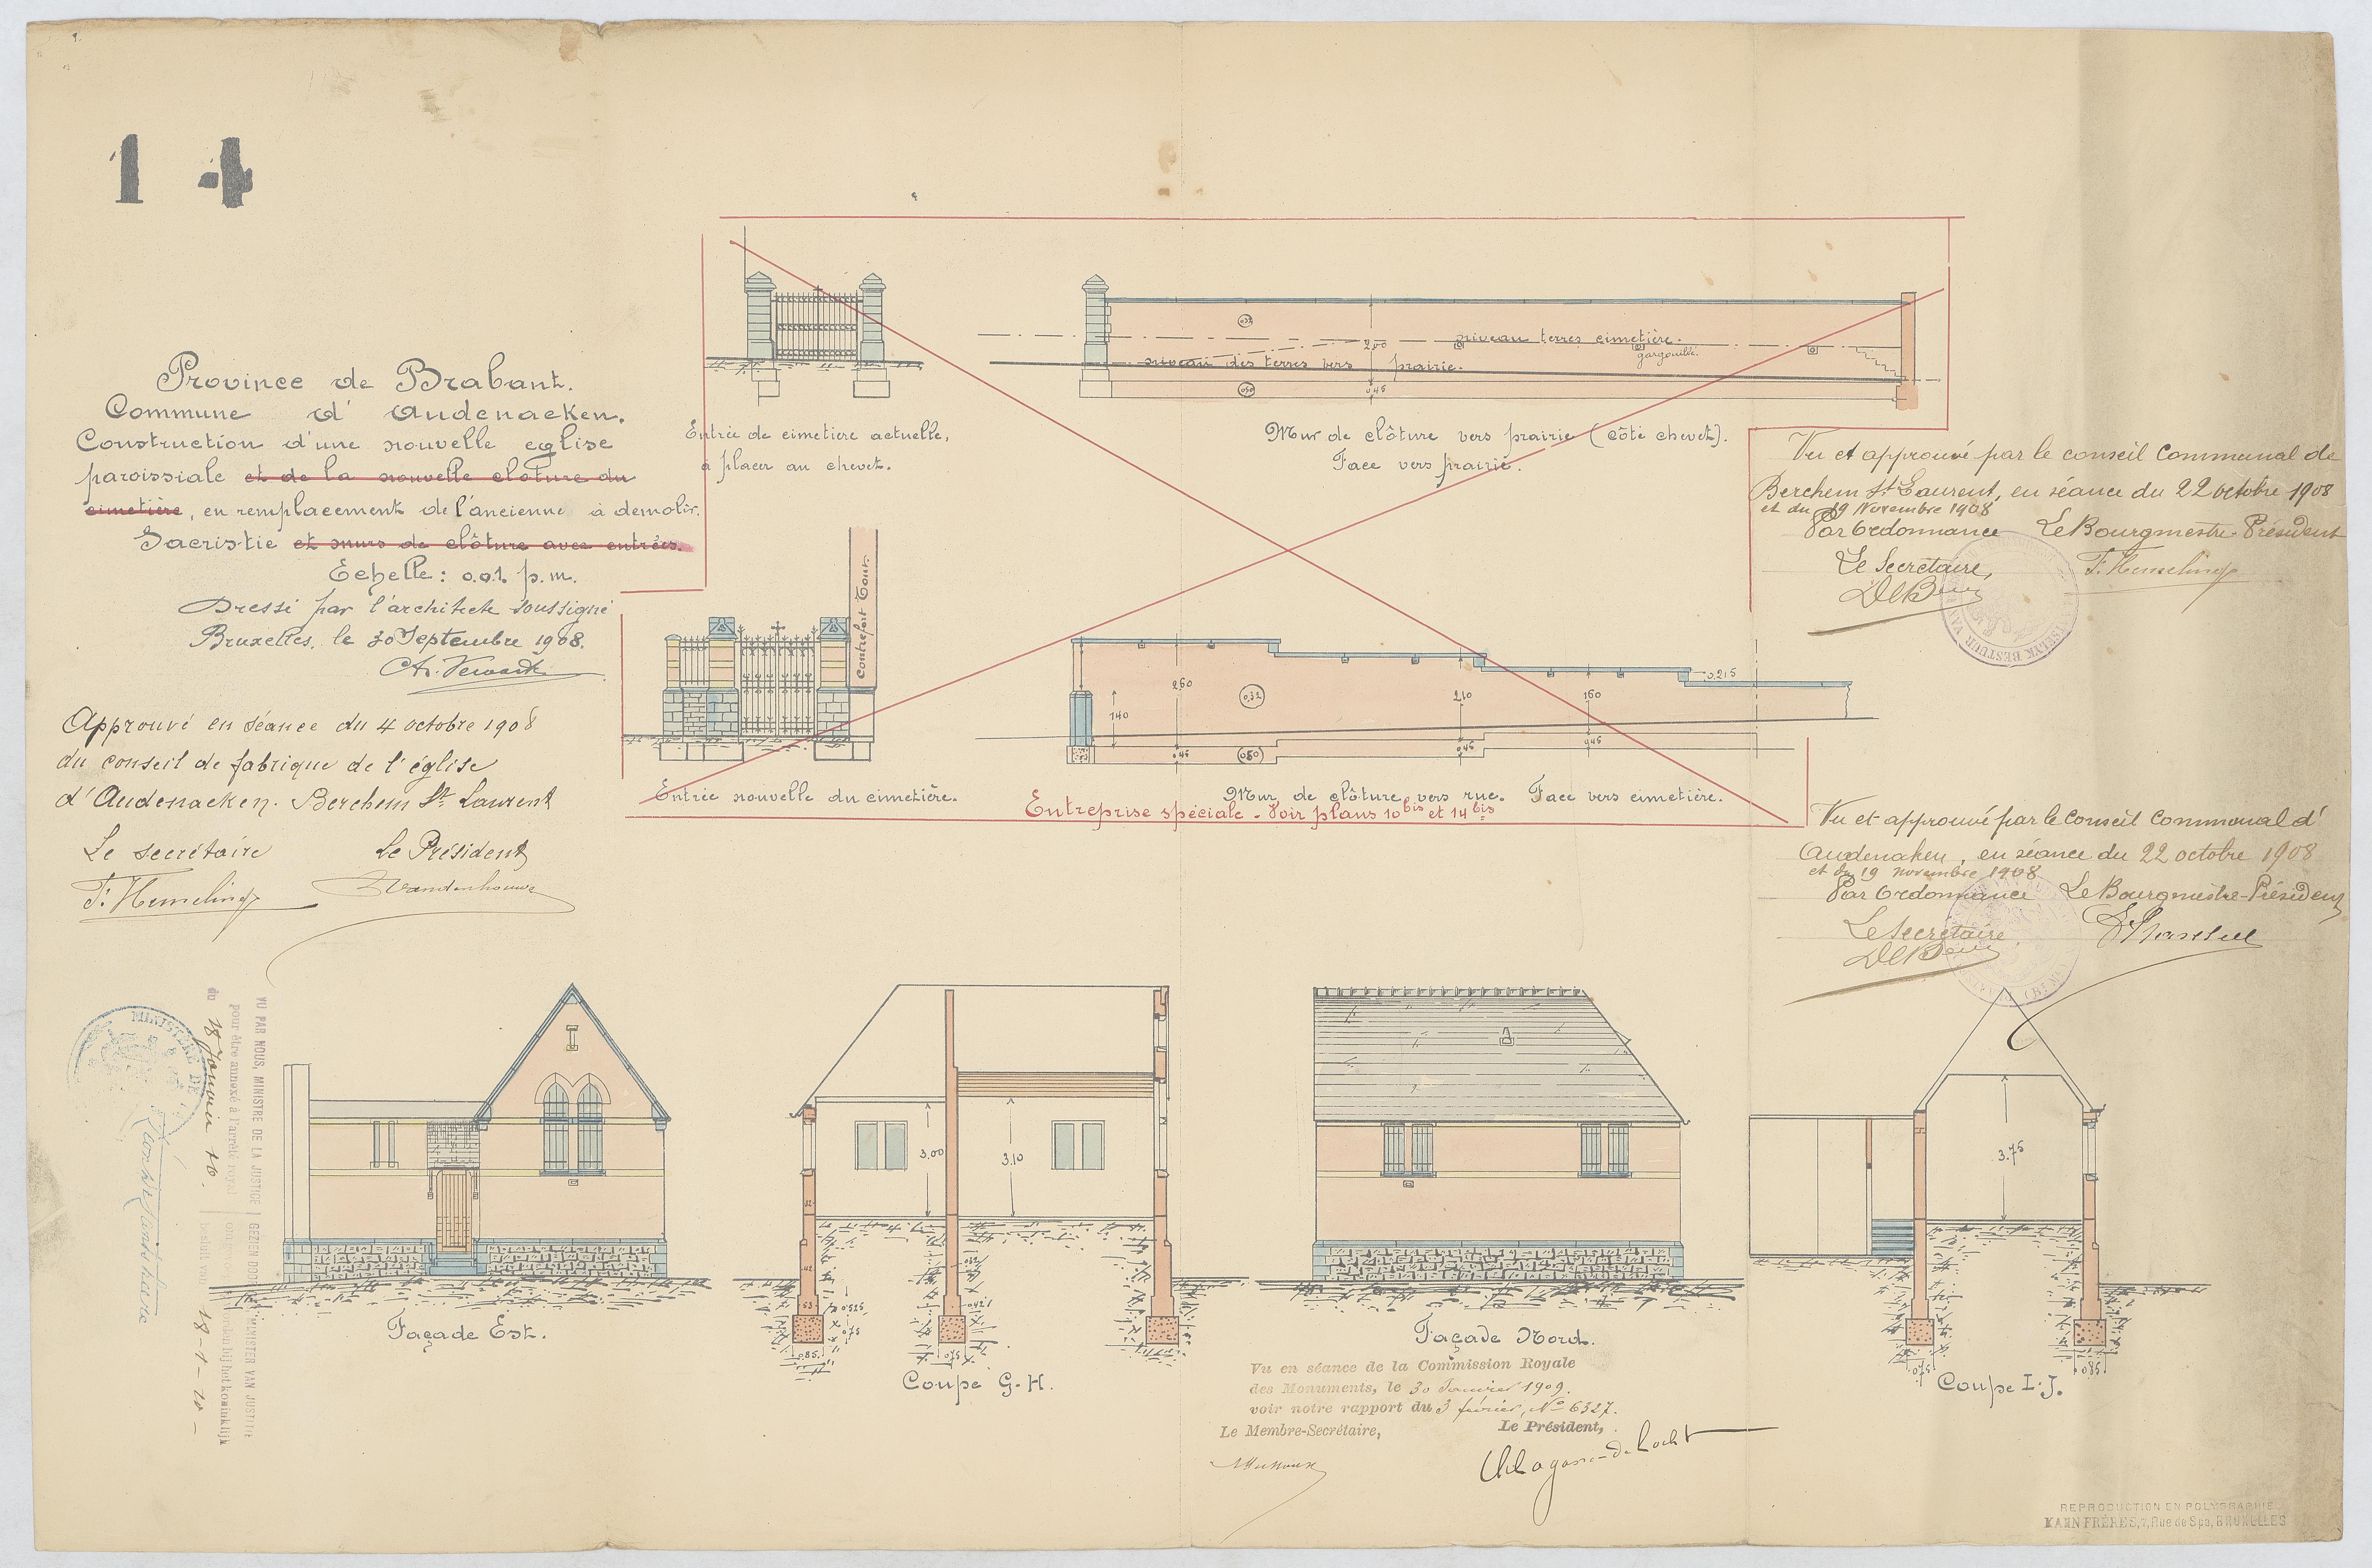 14
Province de Brabant.
Commune d' Audenaeken.
Construction d'une nouvelle eglise
paroissiale et de la nouvelle clôture du
cimetière, en remplacement de l'ancienne à demolir.
Sacristie et murs de clôture avec entrées.
Echelle: 0.01. p.m.
Dressé par l'architecte soussigné
Bruxelles, le 30 Septembre 1908.
Approuvé en séance du 4 octobre 1908
du conseil de fabrique de l'église
d'Audenaeken. Berchem St Laurent
Le secrétaire le Président
F. Hemelings Vandenhouve
Entrée de cimetiere actuelle,
à placer au chevet.
032
200
niveau terres cimetière.
gargouille.
niveau des terres vers prairie.
050
0,45
Mur de clôture vers prairie (côté chevet).
Face vers prairie.
Contrefort Tour.
Entrée nouvelle du cimetière.
260
0,32
140
210
160
0,215
0,45
050
0,45
0,45
Mur de clôture vers rue. Face vers cimetière.
Entreprise spéciale - Voir plans 10bis et 14bis
Vu et approuvé par le conseil Communal de
Berchem St Laurent, en séance du 22 octobre 1908
et du 19 Novembre 1908
Par Ordonnance Le Bourgmestre-Président
Le Secrétaire, F. Hemelings
Vu et approuvé par le conseil communal d'
Audenaken, en séance du 22 octobre 1908
et du 19 novembre 1908
Par Ordonnance Le Bourgmestre-Président
Le Secrétaire
MINISTÈRE DE
VU PAR NOUS, MINISTRE DE LA JUSTICE
pour être annexé à l'arrêté royal
du 18 Janvier 10.
GEZIEN DOOR MINISTER VAN JUSTITIE
om bij het koninklijk
besluit van 18-1-10-
Façade Est.
3.00
3.10
Coupe G.H.
Façade Nord.
3.75
075
085
Coupe I.J.
Vu en séance de la Commission Royale
des Monuments, le 30 Janvier 1909.
voir notre rapport du 3 février, No 6327.
Le Membre-Secrétaire, Le Président,
REPRODUCTION EN POLYGRAPHIE
KAHN FRÈRES, 7, Rue de Spa, BRUXELLES